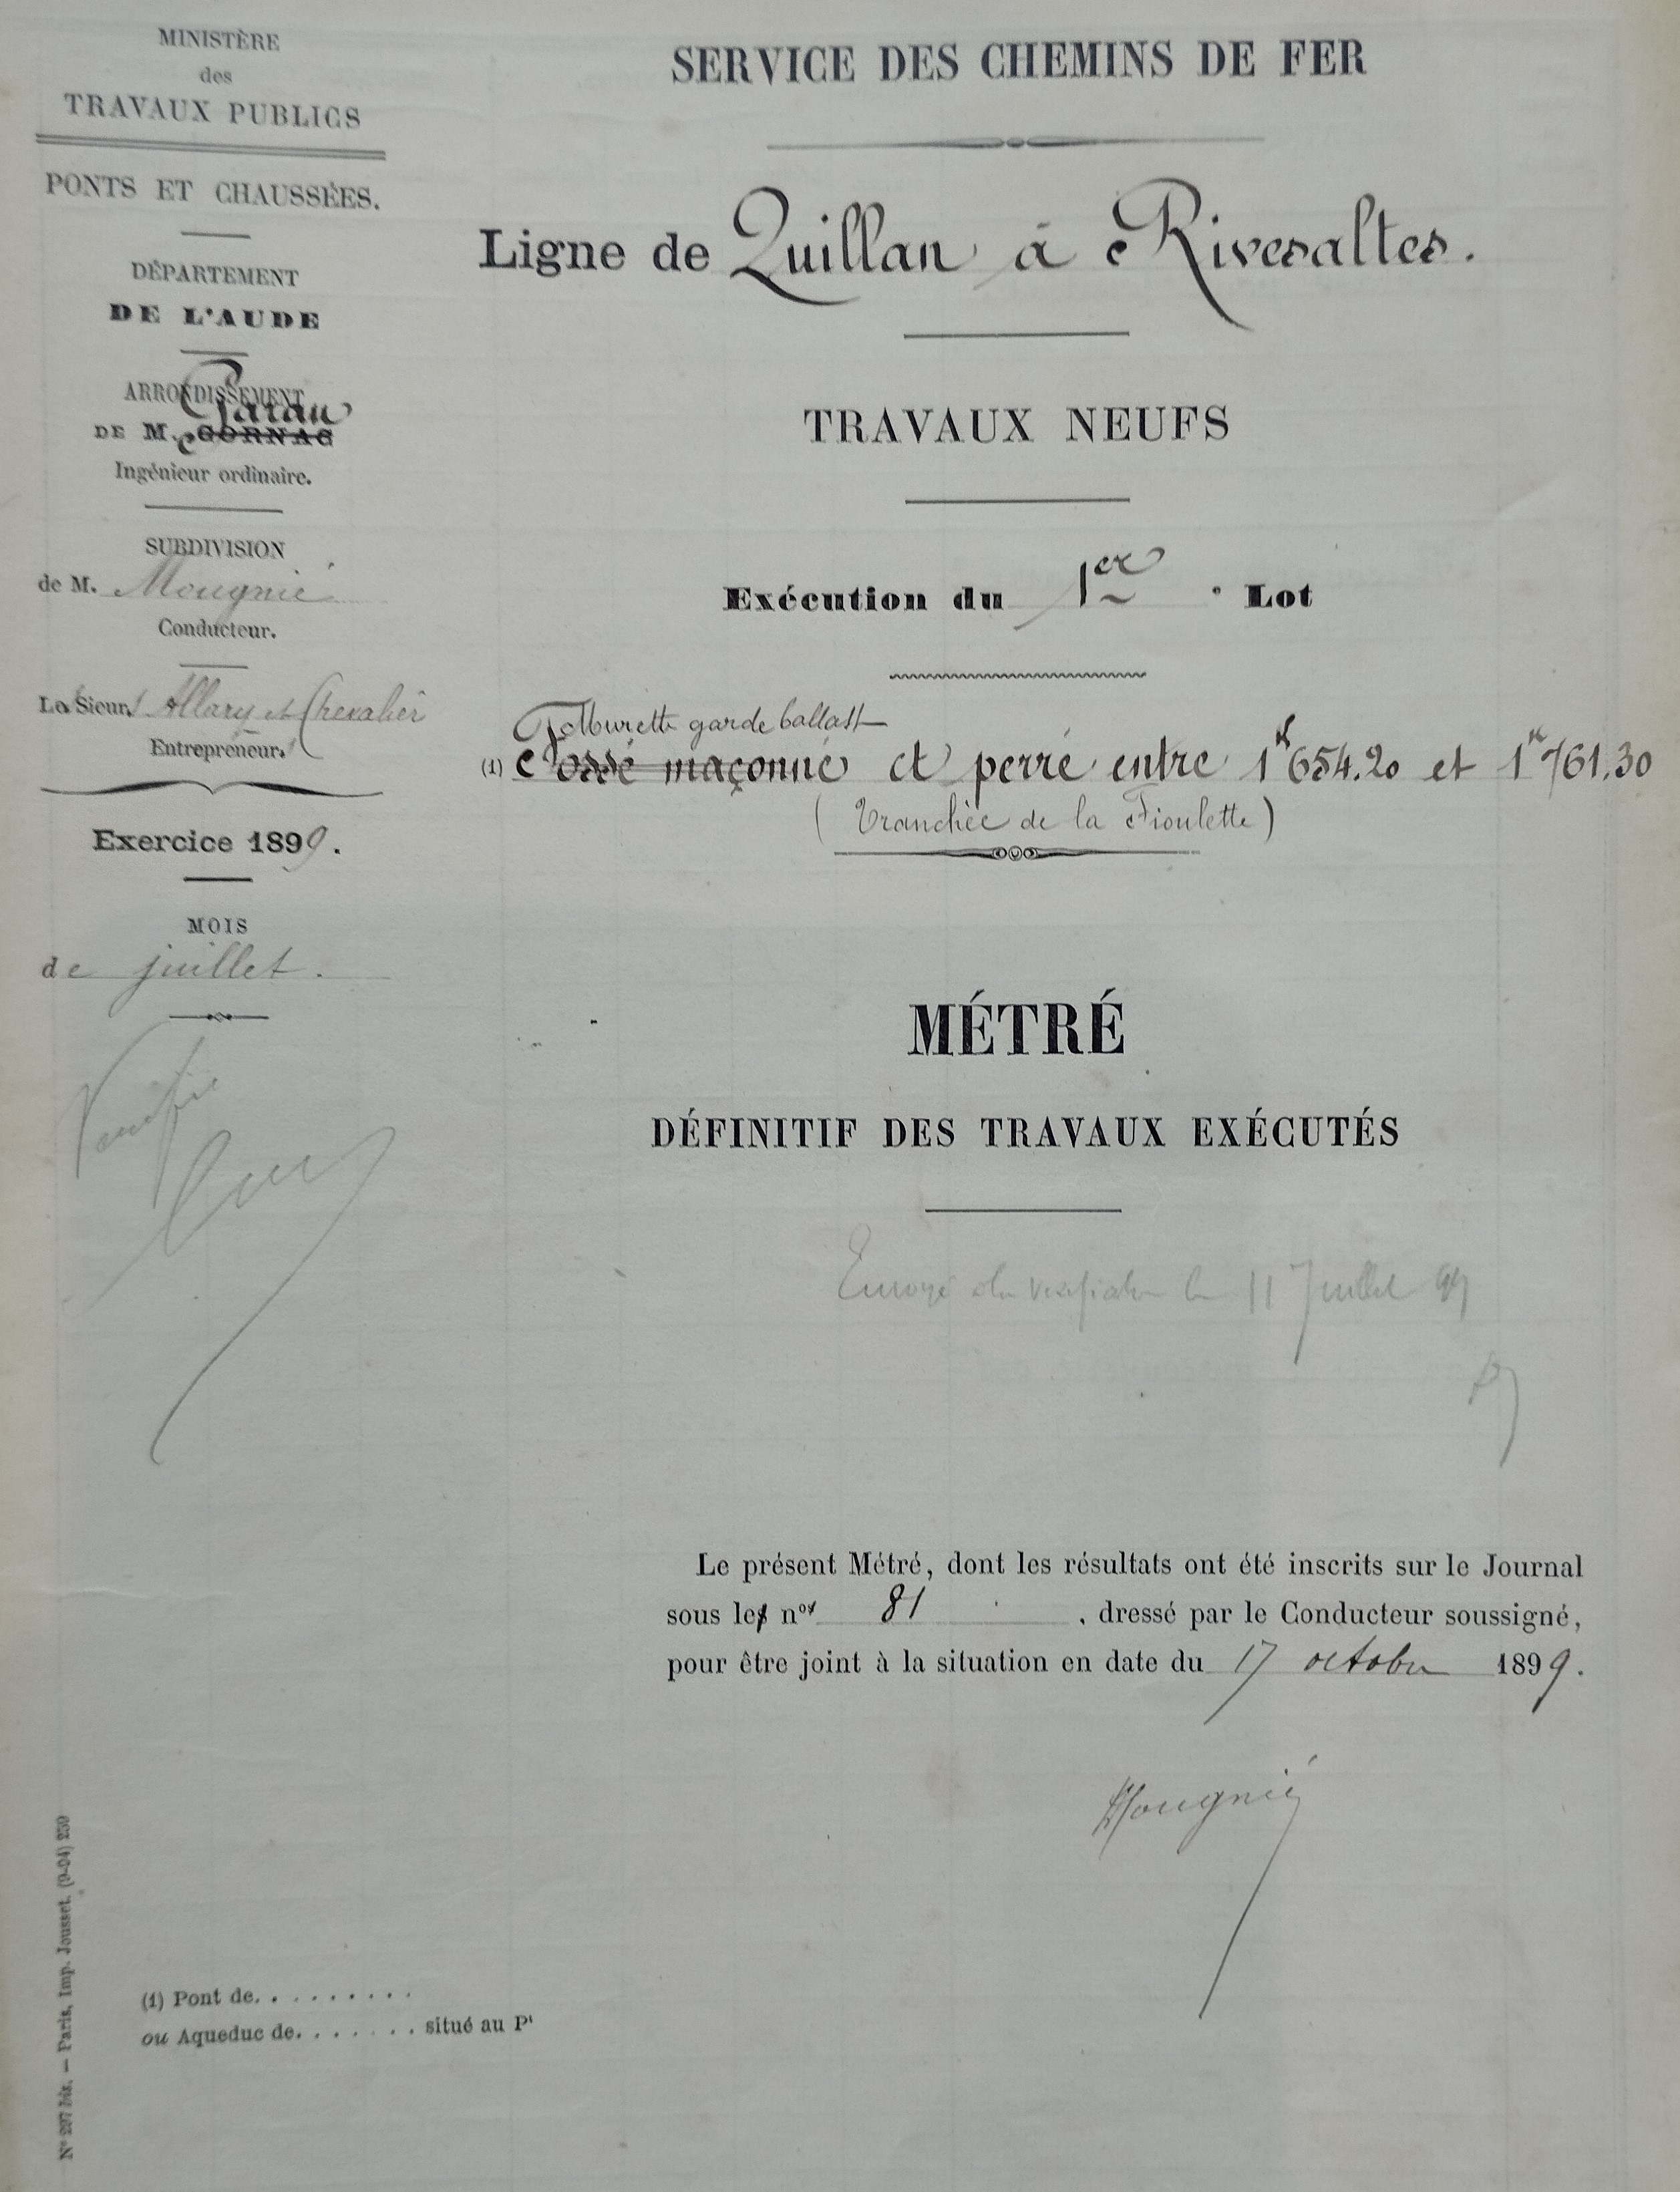 MINISTÈRE
des
TRAVAUX PUBLICS
PONTS ET CHAUSSÉES.
DÉPARTEMENT
DE L'AUDE
ARRONDISSEMENT
Parau
DE M. CORNAC
Ingénieur ordinaire.
SUBDIVISION
de M. Mougnié
Conducteur.
Le Sieur Allary et Chevalier
Entrepreneur.
Exercice 1899.
MOIS
de juillet.
SERVICE DES CHEMINS DE FER
Ligne de Quillan à Rivesaltes.
TRAVAUX NEUFS
Exécution du 1er Lot
Murette garde ballast
(1) Fossé maçonné et perré entre 1k654.20 et 1k761.30
(Tranchée de la Fioulette)
MÉTRÉ
DÉFINITIF DES TRAVAUX EXÉCUTÉS
Envoyé le 11 Juillet 99
Le présent Métré, dont les résultats ont été inscrits sur le Journal
sous les nos 81 , dressé par le Conducteur soussigné,
pour être joint à la situation en date du 17 octobre 1899.
Mougnié
(1) Pont de. . . . . . . . .
ou Aqueduc de. . . . . . . situé au Pt
N° 297 bis. — Paris, Imp. Jousset. (9-04) 250